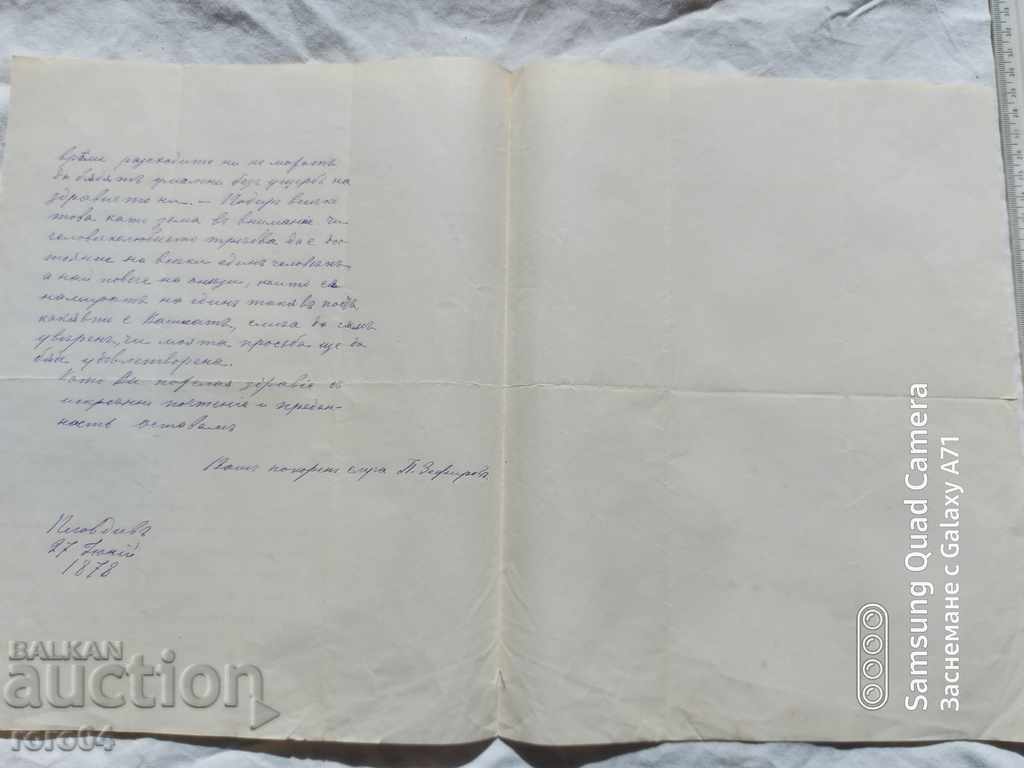 врѣме разходите ни не можатъ
да бѫдѫтъ умалени безъ ущербъ на
здравието ни. — Подиръ всичко
това като зема въ внимание чи
человѣколюбието трѣбва да е до-
стояние на всѣки единъ человѣкъ,
а най повече на онѣзи, които сѫ
на единъ такъвъ постъ,
какъвто е Вашиатъ, смѣя да съмъ
увѣренъ, чи моята просьба ще да
бѫде удовлетворена.
Като Ви пожелая здравіе съ
искренни почтения и предан-
ность оставамъ
Вашъ покоренъ слуга П. Зефировъ
Пловдивъ
27 Јюній
1878
BALKAN
auction
roro04
Samsung Quad Camera
Заснемане с Galaxy A71